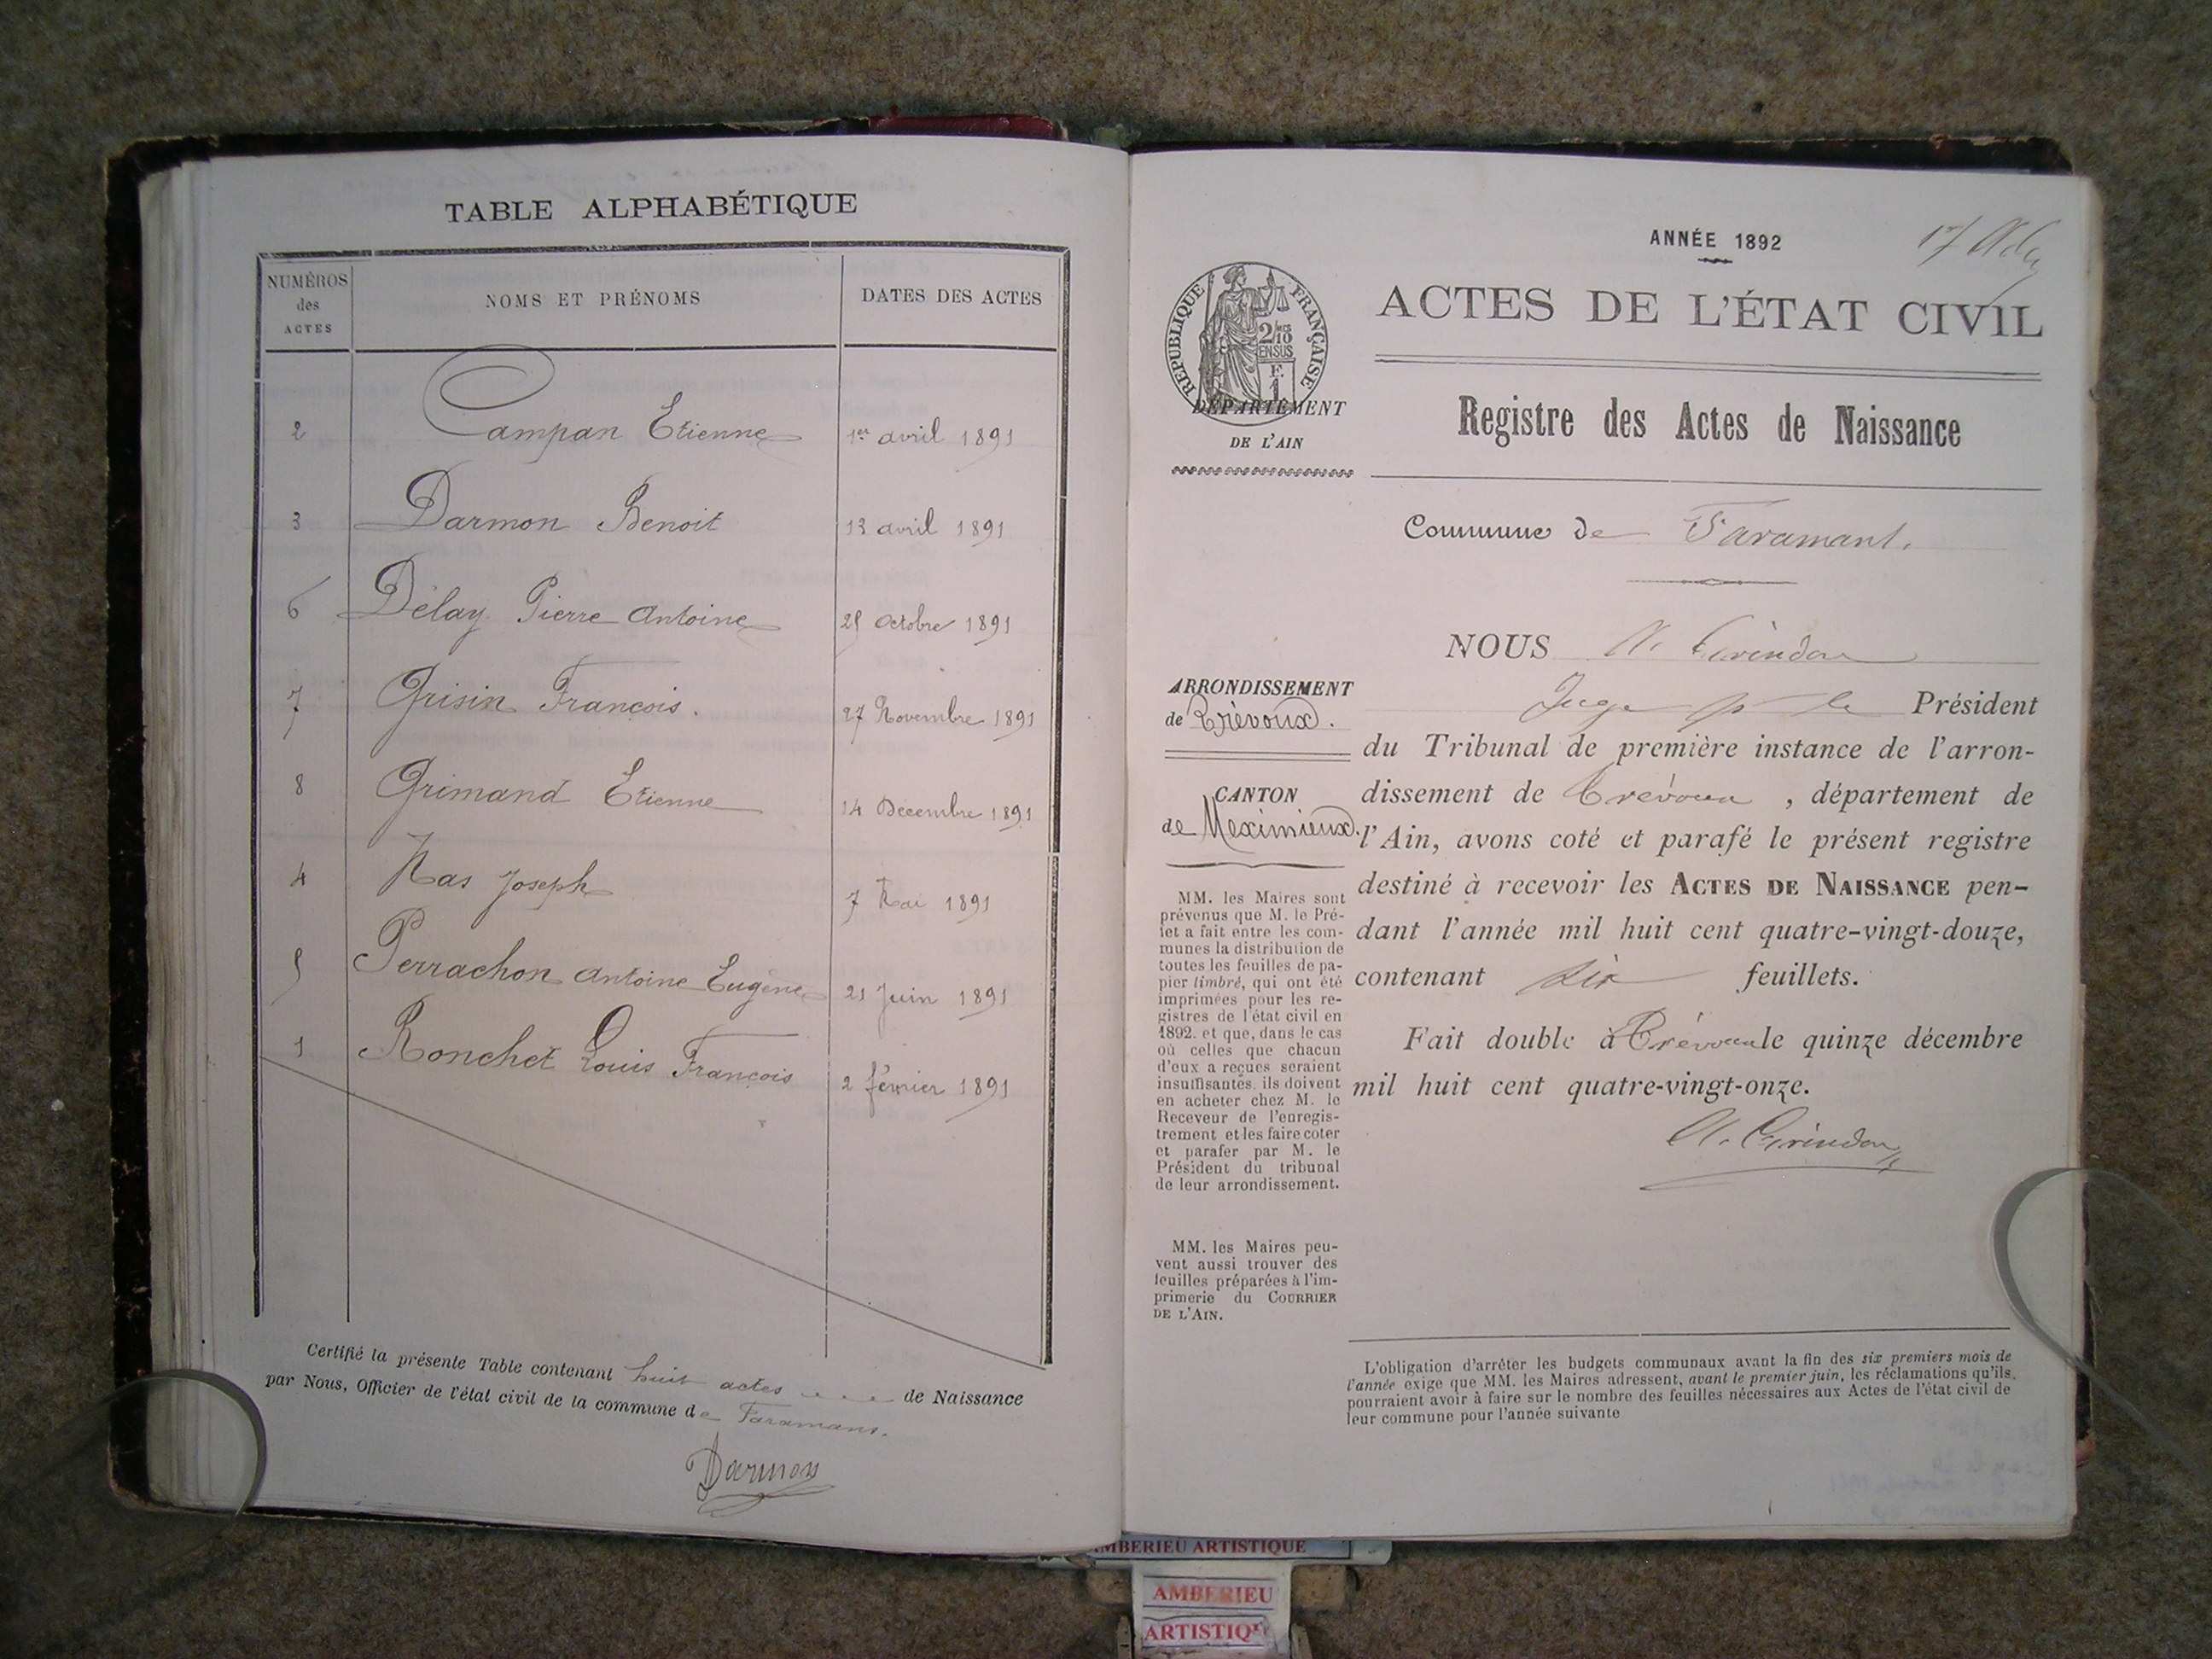 TABLE ALPHABÉTIQUE
NUMÉROS des ACTES
NOMS ET PRÉNOMS
DATES DES ACTES
2 Campan Etienne 1er avril 1891
3 Darmon Benoit 13 avril 1891
6 Délay Pierre Antoine 25 Octobre 1891
7 Grisin François. 27 Novembre 1891
8 Grimand Etienne 14 Décembre 1891
4 Mas Joseph 7 Mai 1891
5 Perrachon Antoine Eugène 21 Juin 1891
1 Ronchet Louis François 2 février 1891
Certifié la présente Table contenant huit actes de Naissance
par Nous, Officier de l'état civil de la commune de Faramans.
Darmon
ANNÉE 1892
ACTES DE L'ÉTAT CIVIL
RÉPUBLIQUE FRANÇAISE
2/10
EN SUS
F.
1
DÉPARTEMENT
DE L'AIN
Registre des Actes de Naissance
Commune de Faramant.
NOUS
Juge pr le Président
ARRONDISSEMENT
de Trévoux.
du Tribunal de première instance de l'arron-
dissement de Trévoux, département de
CANTON
de Meximieux.
l'Ain, avons coté et parafé le présent registre
destiné à recevoir les ACTES DE NAISSANCE pen-
dant l'année mil huit cent quatre-vingt-douze,
contenant six feuillets.
Fait double à Trévoux le quinze décembre
mil huit cent quatre-vingt-onze.
MM. les Maires sont
prévenus que M. le Pré-
fet a fait entre les com-
munes la distribution de
toutes les feuilles de pa-
pier timbré, qui ont été
imprimées pour les re-
gistres de l'état civil en
1892. et que, dans le cas
où celles que chacun
d'eux a reçues seraient
insuffisantes, ils doivent
en acheter chez M. le
Receveur de l'enregis-
trement et les faire coter
et parafer par M. le
Président du tribunal
de leur arrondissement.
MM. les Maires peu-
vent aussi trouver des
feuilles préparées à l'im-
primerie du COURRIER
DE L'AIN.
L'obligation d'arrêter les budgets communaux avant la fin des six premiers mois de
l'année exige que MM. les Maires adressent, avant le premier juin, les réclamations qu'ils
pourraient avoir à faire sur le nombre des feuilles nécessaires aux Actes de l'état civil de
leur commune pour l'année suivante
AMBERIEU ARTISTIQUE
AMBERIEU
ARTISTIQUE